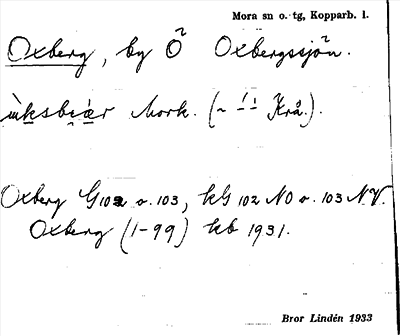 Mora sn o. tg, Kopparb. l.
Oxberg, by Ö Oxbergssjön.
ùksbe̯ær Mork. (~ ´ ` Krå.).
Oxberg G 102 o. 103, kG 102 NO o. 103 NV.
Oxberg (1-99) kb 1931.
Bror Lindén 1933